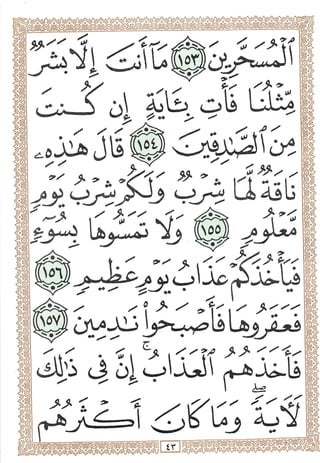 ٱلْمُسَحَّرِينَ ١٥٣ مَآ أَنتَ إِلَّا بَشَرٌ
مِّثْلُنَا فَأْتِ بِـَٔايَةٍ إِن كُنتَ
مِنَ ٱلصَّٰدِقِينَ ١٥٤ قَالَ هَٰذِهِۦ
نَاقَةٌ لَّهَا شِرْبٌ وَلَكُمْ شِرْبُ يَوْمٍ
مَّعْلُومٍ ١٥٥ وَلَا تَمَسُّوهَا بِسُوٓءٍ
فَيَأْخُذَكُمْ عَذَابُ يَوْمٍ عَظِيمٍ ١٥٦
فَعَقَرُوهَا فَأَصْبَحُوا۟ نَٰدِمِينَ ١٥٧
فَأَخَذَهُمُ ٱلْعَذَابُ ۗ إِنَّ فِى ذَٰلِكَ
لَـَٔايَةً ۖ وَمَا كَانَ أَكْثَرُهُم
٤٣